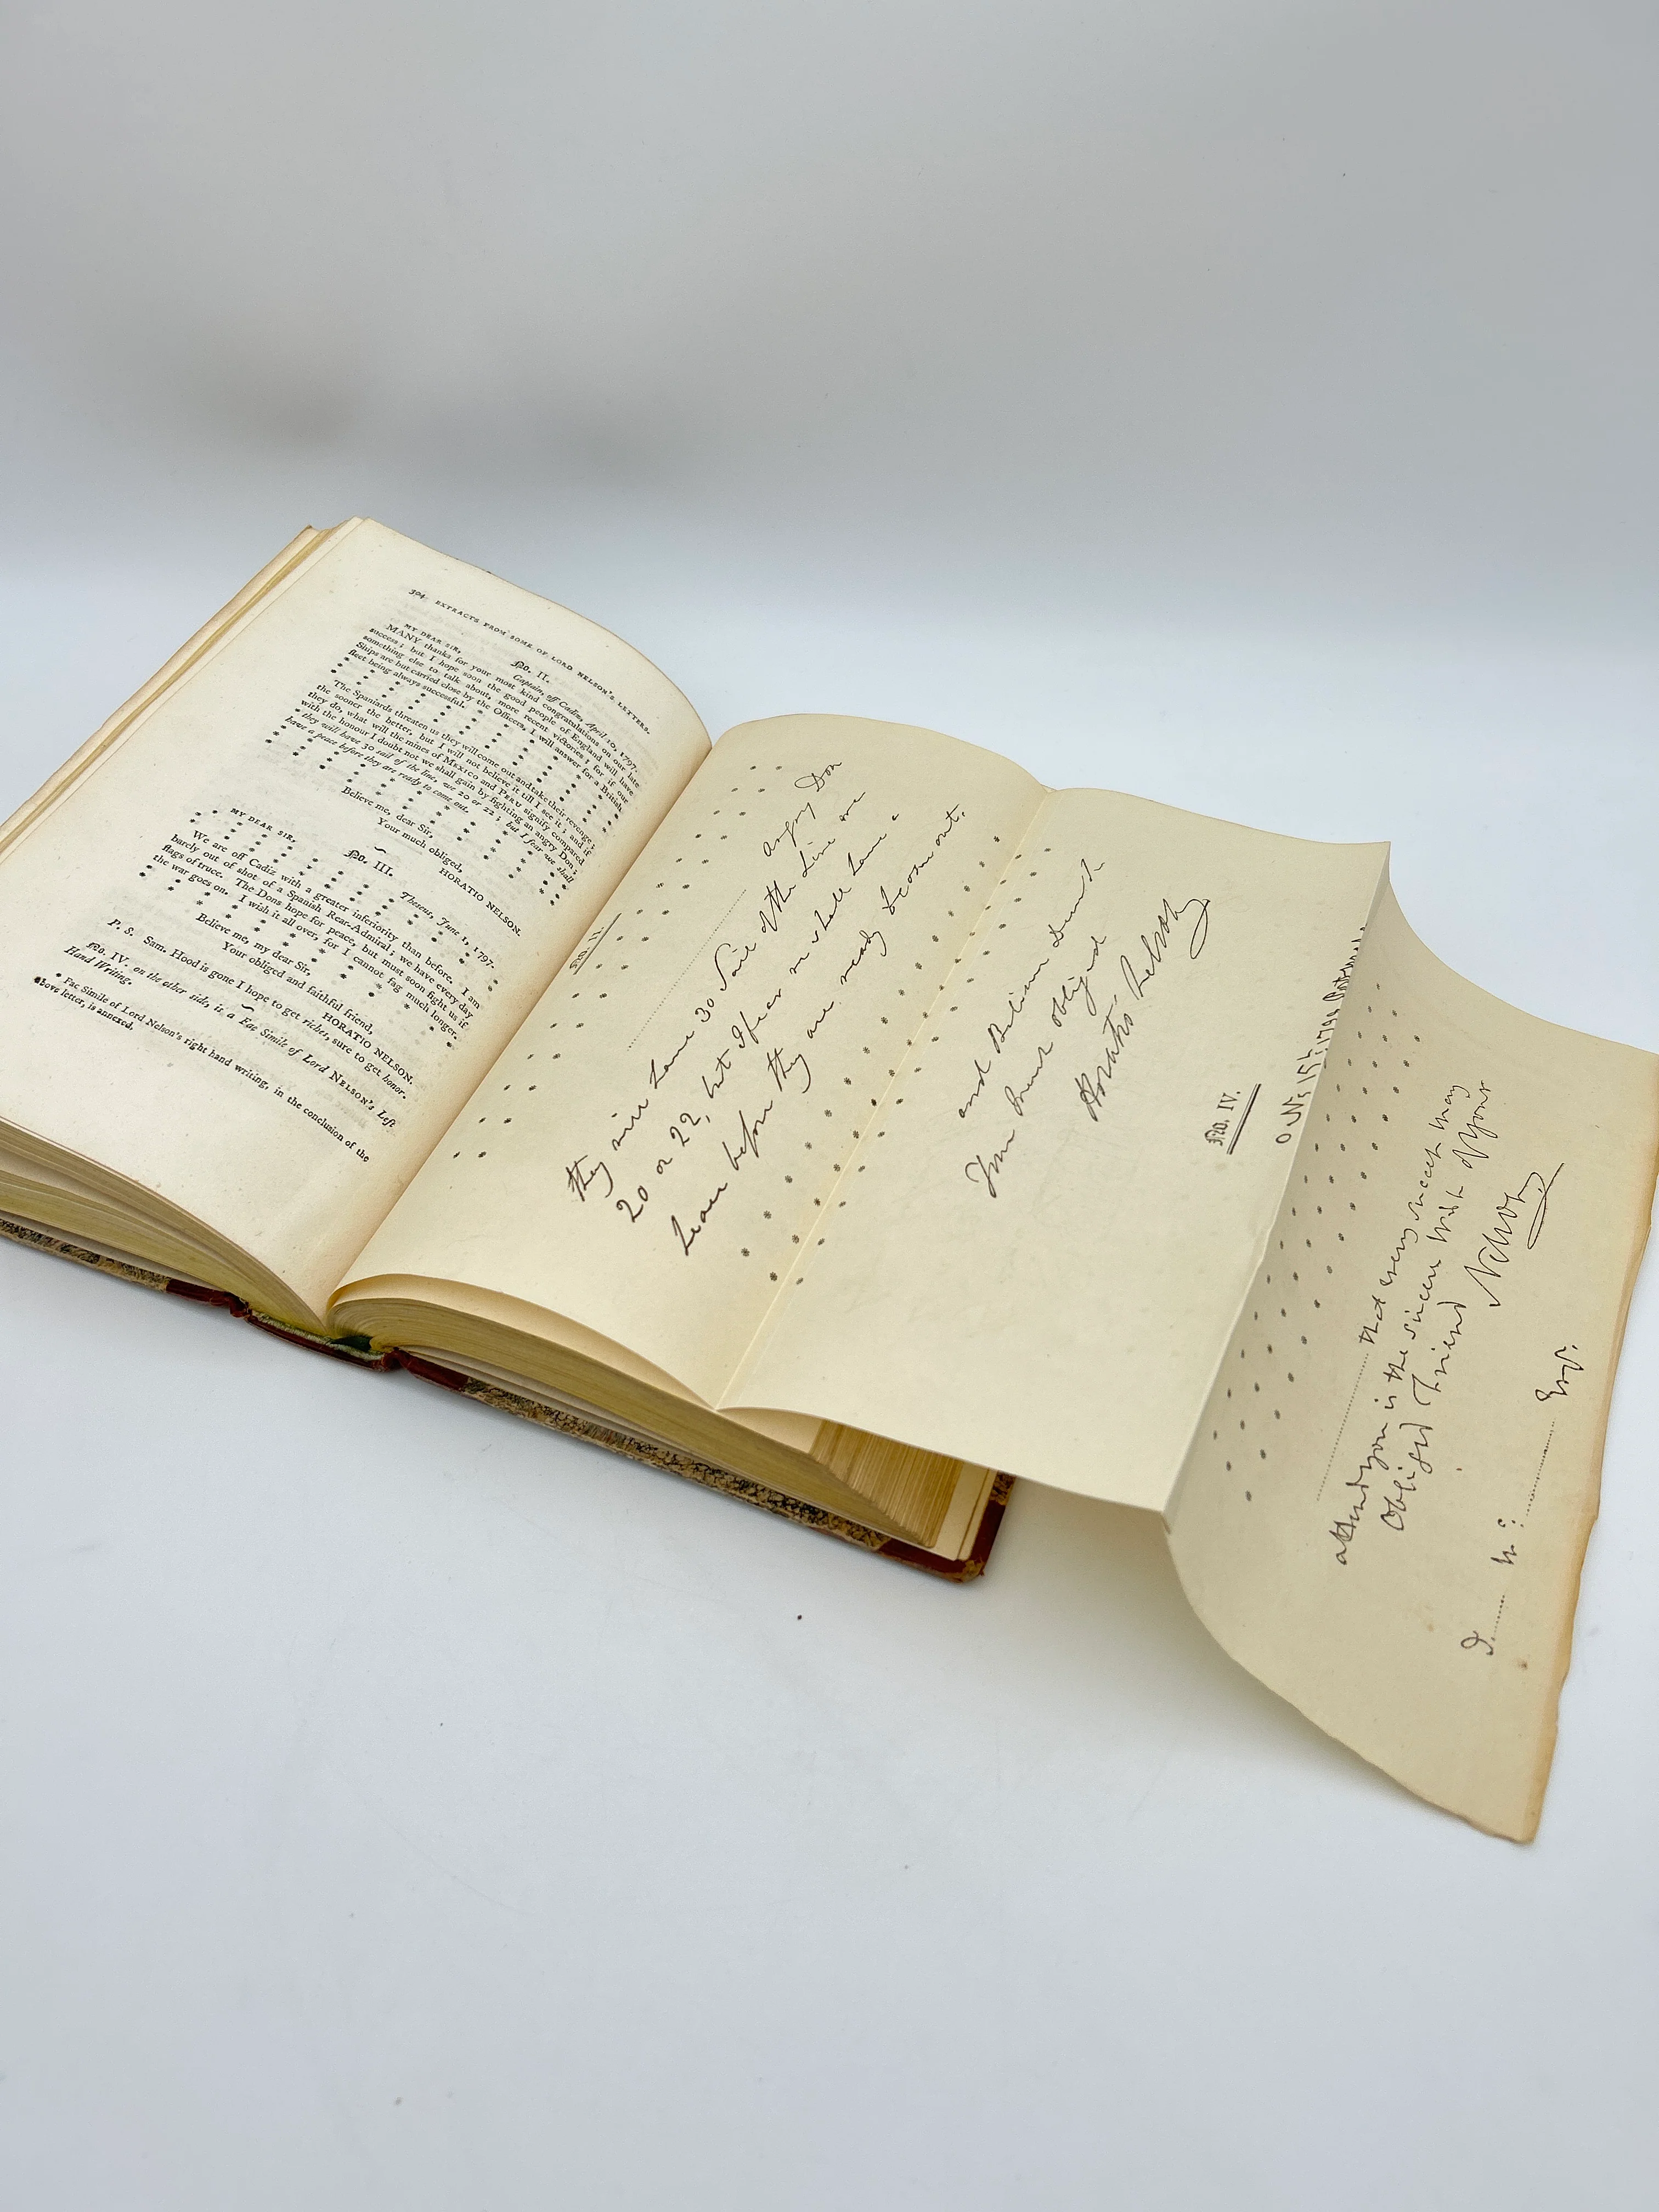 304 EXTRACTS FROM SOME OF LORD NELSON'S LETTERS.
No. II.
Captain, off Cadiz, April 10, 1797.
MY DEAR SIR,
MANY thanks for your most kind congratulations on our late
success; but I hope soon the good people of England will have
something else to talk about, more recent victories; for if our
Ships are but carried close by the Officers, I will answer for a British
fleet being always successful. * * * * * *
The Spaniards threaten us they will come out and take their revenge;
the sooner the better, but I will not believe it till I see it; and if
they do, what will the mines of MEXICO and PERU signify compared
with the honour I doubt not we shall gain by fighting an angry Don;
* they will have 30 sail of the line, we 20 or 22; but I fear we shall
have a peace before they are ready to come out.
Believe me, dear Sir,
Your much obliged,
HORATIO NELSON.
No. III.
Theseus, June 1, 1797.
MY DEAR SIR,
We are off Cadiz with a greater inferiority than before. I am
barely out of shot of a Spanish Rear-Admiral; we have every day
flags of truce. The Dons hope for peace, but must soon fight us if
the war goes on. I wish it all over, for I cannot fag much longer.
Believe me, my dear Sir,
Your obliged and faithful friend,
HORATIO NELSON.
P. S. Sam. Hood is gone I hope to get riches, sure to get honor.
No. IV. on the other side, is a Fac Simile of Lord NELSON's Left
Hand Writing.
* Fac Simile of Lord Nelson's right hand writing, in the conclusion of the
above letter, is annexed.
No. II.
angry Don
they will have 30 Sail of the Line we
20 or 22, but I fear we shall have a
peace before they are ready to come out.
and Believe Dear Sir
Your much obliged
Horatio Nelson
No. IV.
that every success may
attend you is the sincere wish of your
Obliged Friend
Nelson
Esqr.